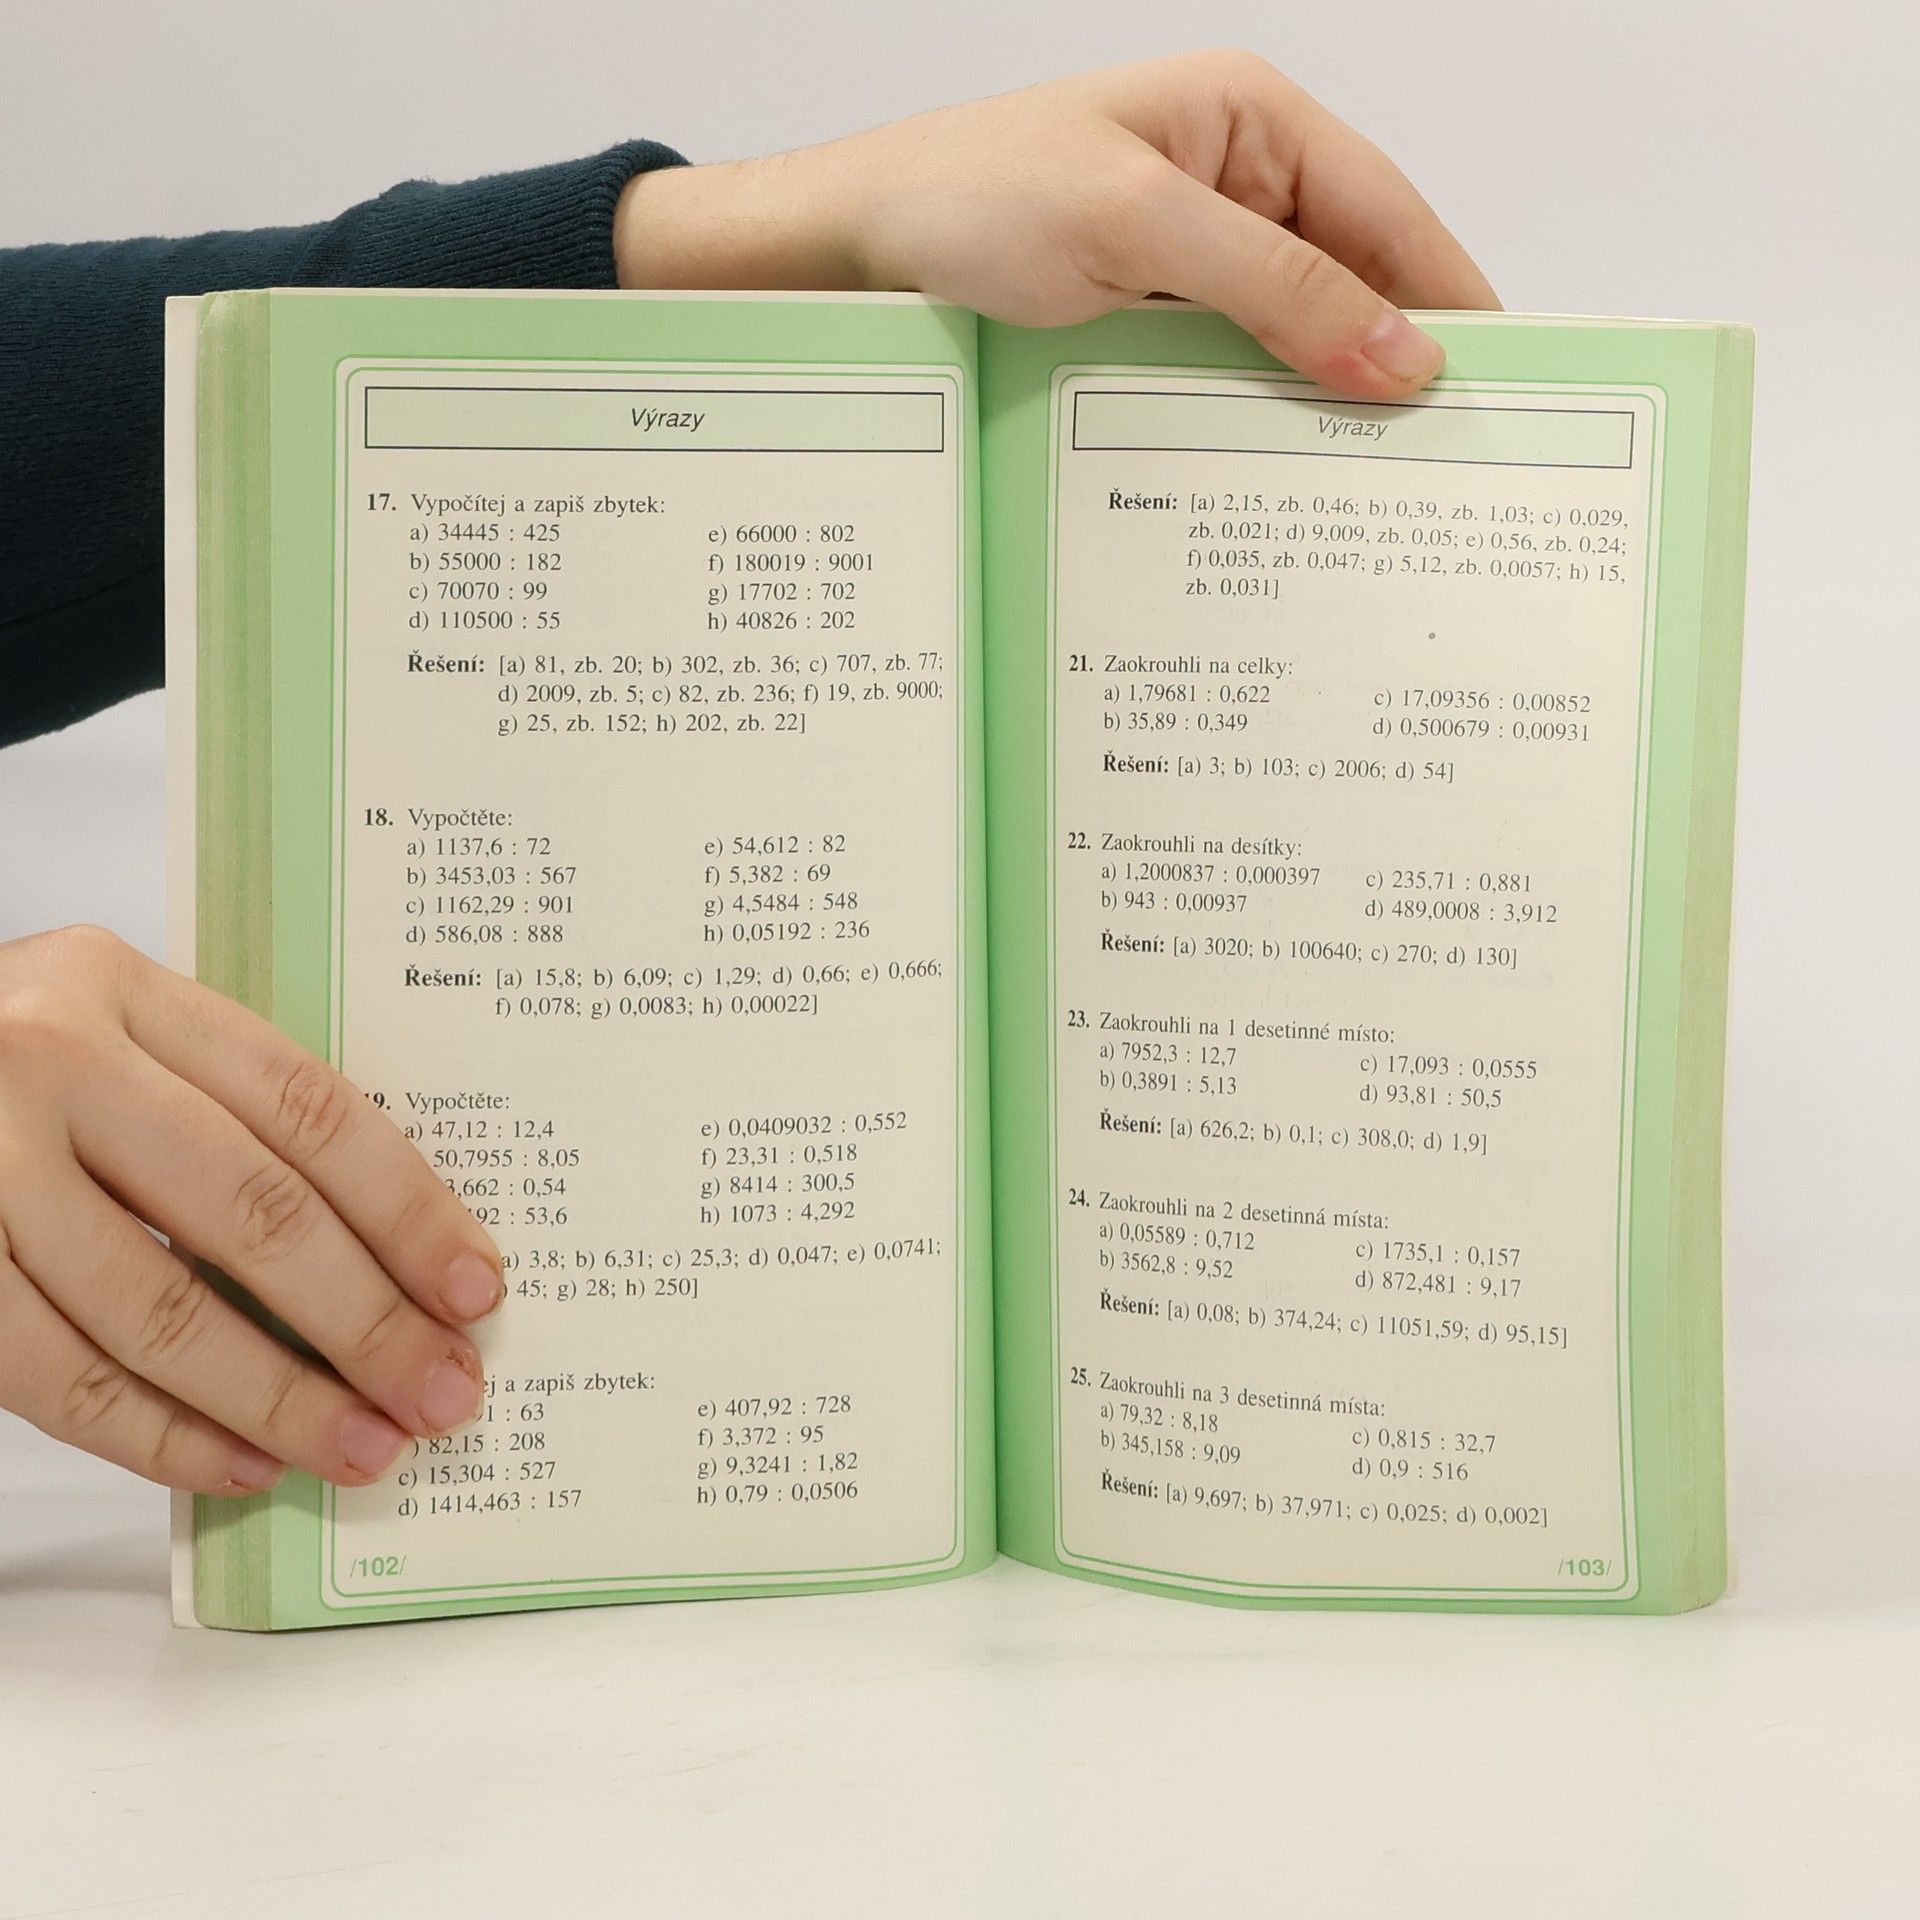 Výrazy
17. Vypočítej a zapiš zbytek:
a) 34445 : 425 e) 66000 : 802
b) 55000 : 182 f) 180019 : 9001
c) 70070 : 99 g) 17702 : 702
d) 110500 : 55 h) 40826 : 202
Řešení: [a) 81, zb. 20; b) 302, zb. 36; c) 707, zb. 77;
d) 2009, zb. 5; c) 82, zb. 236; f) 19, zb. 9000;
g) 25, zb. 152; h) 202, zb. 22]
18. Vypočtěte:
a) 1137,6 : 72 e) 54,612 : 82
b) 3453,03 : 567 f) 5,382 : 69
c) 1162,29 : 901 g) 4,5484 : 548
d) 586,08 : 888 h) 0,05192 : 236
Řešení: [a) 15,8; b) 6,09; c) 1,29; d) 0,66; e) 0,666;
f) 0,078; g) 0,0083; h) 0,00022]
9. Vypočtěte:
a) 47,12 : 12,4 e) 0,0409032 : 0,552
50,7955 : 8,05 f) 23,31 : 0,518
,662 : 0,54 g) 8414 : 300,5
92 : 53,6 h) 1073 : 4,292
a) 3,8; b) 6,31; c) 25,3; d) 0,047; e) 0,0741;
) 45; g) 28; h) 250]
a zapiš zbytek:
1 : 63 e) 407,92 : 728
) 82,15 : 208 f) 3,372 : 95
c) 15,304 : 527 g) 9,3241 : 1,82
d) 1414,463 : 157 h) 0,79 : 0,0506
/102/
Výrazy
Řešení: [a) 2,15, zb. 0,46; b) 0,39, zb. 1,03; c) 0,029,
zb. 0,021; d) 9,009, zb. 0,05; e) 0,56, zb. 0,24;
f) 0,035, zb. 0,047; g) 5,12, zb. 0,0057; h) 15,
zb. 0,031]
21. Zaokrouhli na celky:
a) 1,79681 : 0,622 c) 17,09356 : 0,00852
b) 35,89 : 0,349 d) 0,500679 : 0,00931
Řešení: [a) 3; b) 103; c) 2006; d) 54]
22. Zaokrouhli na desítky:
a) 1,2000837 : 0,000397 c) 235,71 : 0,881
b) 943 : 0,00937 d) 489,0008 : 3,912
Řešení: [a) 3020; b) 100640; c) 270; d) 130]
23. Zaokrouhli na 1 desetinné místo:
a) 7952,3 : 12,7 c) 17,093 : 0,0555
b) 0,3891 : 5,13 d) 93,81 : 50,5
Řešení: [a) 626,2; b) 0,1; c) 308,0; d) 1,9]
24. Zaokrouhli na 2 desetinná místa:
a) 0,05589 : 0,712 c) 1735,1 : 0,157
b) 3562,8 : 9,52 d) 872,481 : 9,17
Řešení: [a) 0,08; b) 374,24; c) 11051,59; d) 95,15]
25. Zaokrouhli na 3 desetinná místa:
a) 79,32 : 8,18 c) 0,815 : 32,7
b) 345,158 : 9,09 d) 0,9 : 516
Řešení: [a) 9,697; b) 37,971; c) 0,025; d) 0,002]
/103/